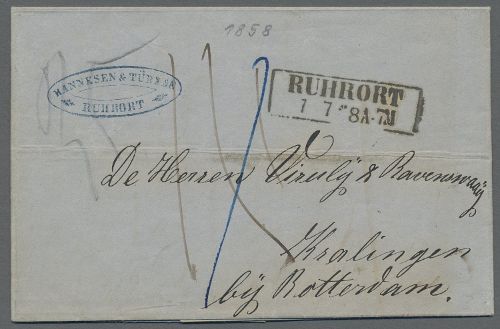 1858
HANNESEN & TÜRK
RUHRORT
RUHRORT
1 7 8A-7N
De Herren Viruly & Ravenswaay
Kralingen
bij Rotterdam.